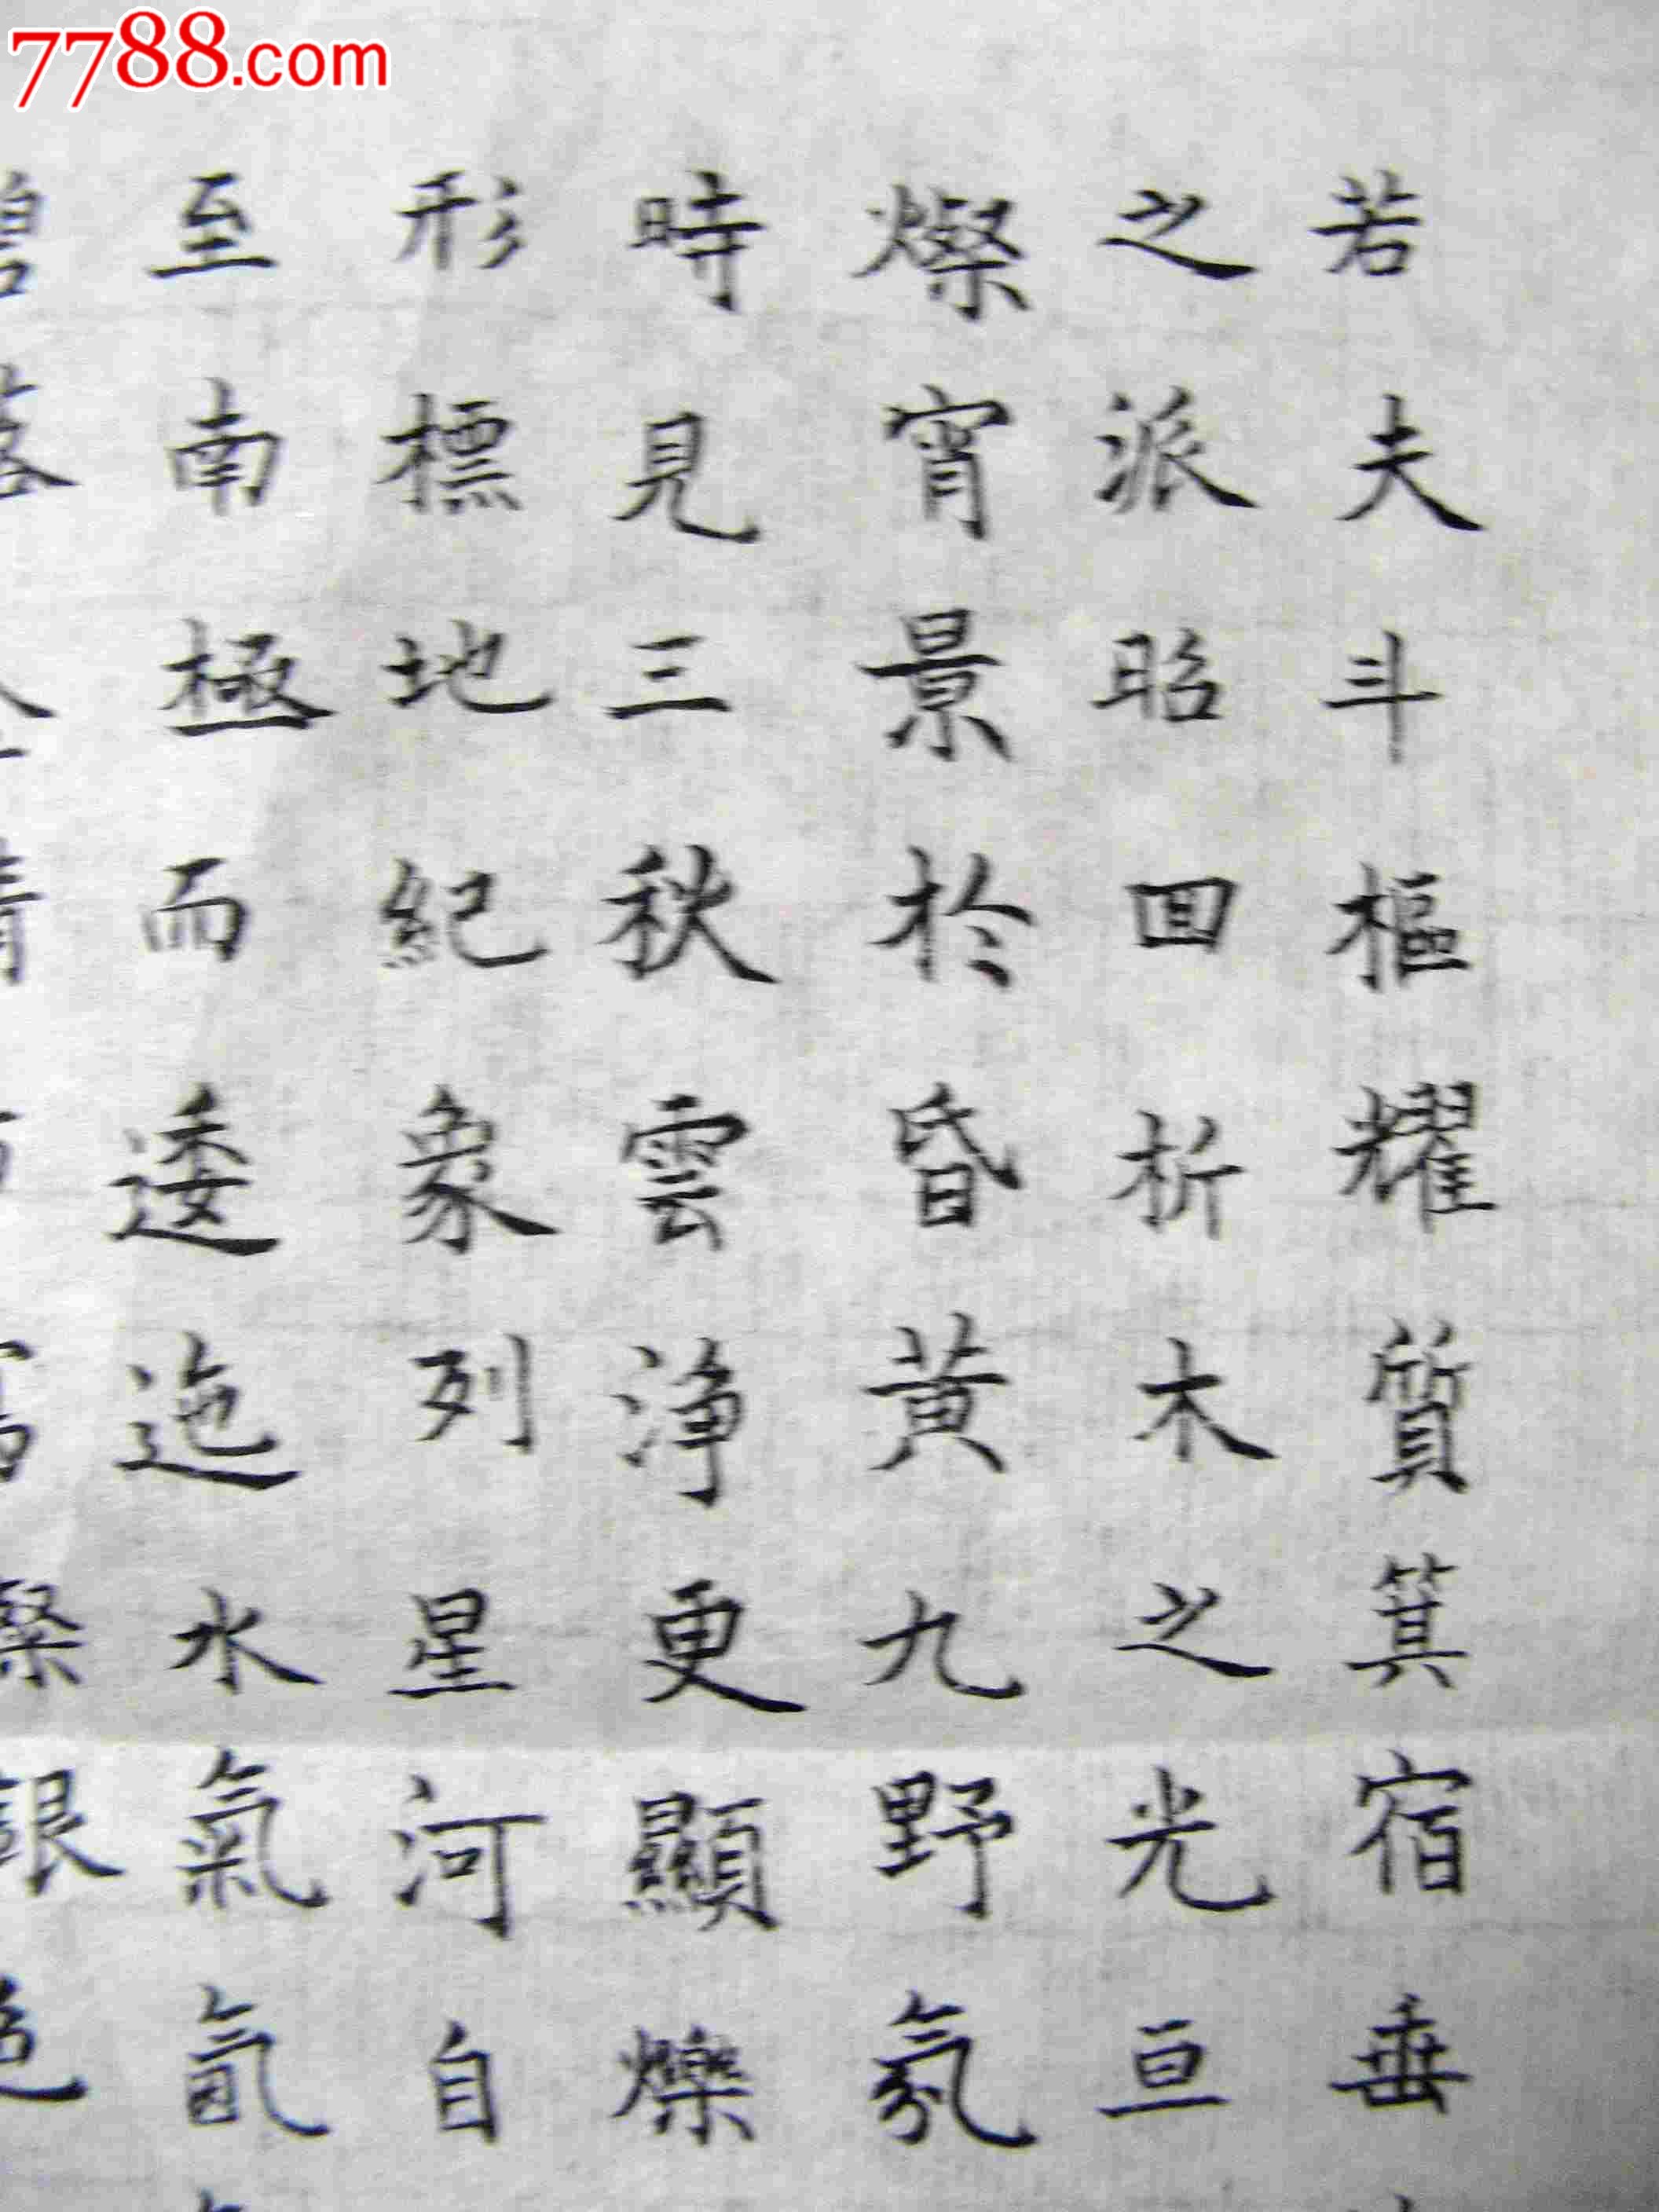 7788.com
若夫斗樞耀質箕宿垂
之派昭回析木之光亘
燦宵景於昏黃九野氛
時見三秋雲淨更顯爍
形標地紀象列星河自
至南極而逶迤水氣氤
碧落
燦銀色